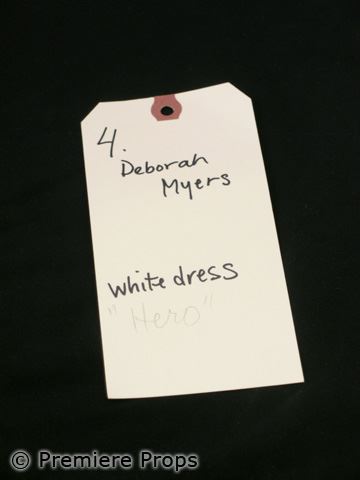 4.
Deborah
Myers
white dress
"Hero"
© Premiere Props